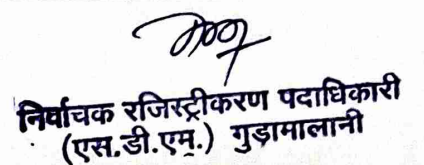 निर्वाचक रजिस्ट्रीकरण पदाधिकारी
(एस.डी.एम.) गुड़ामालानी